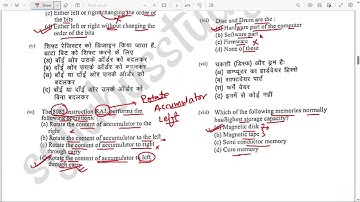 (c) Either left or right changing the order of
the bits
(d) Either left or right without changing the
order of the bits
(v) शिफ्ट रेजिस्टर को डिजाइन किया जाता है,
डाटा बिट को शिफ्ट करने के लिए
(a) बाँई और उसके ऑर्डर को
बदलकर
(b) दाँई और उसके ऑर्डर को बदलकर
(c) बाँई या दाँई और उसके ऑर्डर
को बदलकर
(d) बाँई या दाँई और उसके ऑर्डर को बिना
बदलकर
(vi) The 8085 instruction RAL performs the
following operations:
(a) Rotate the content of accumulator to the
right
(b) Rotate the content of accumulator to the left
(c) Rotate the content of accumulator to right
through carry
(d) Rotate the content of accumulator to left
through carry
Rotate
Accumulator
Left
(vii) Disc and Drum are the :
(a) Hardware part of the computer
(b) Software part
(c) Firmware
(d) None of these
चकती (डिस्क) और ड्रम है:
(a) कम्प्यूटर का हार्डवेयर हिस्सा
(b) साफ्टवेयर पार्ट
(c) फर्म वेयर
(d) इनमें से कोई नहीं
(viii) Which of the following memories normally
has highest storage capacity?
(a) Magnetic disk
(b) Magnetic tape
(c) Semi conductor memory
(d) Core memory